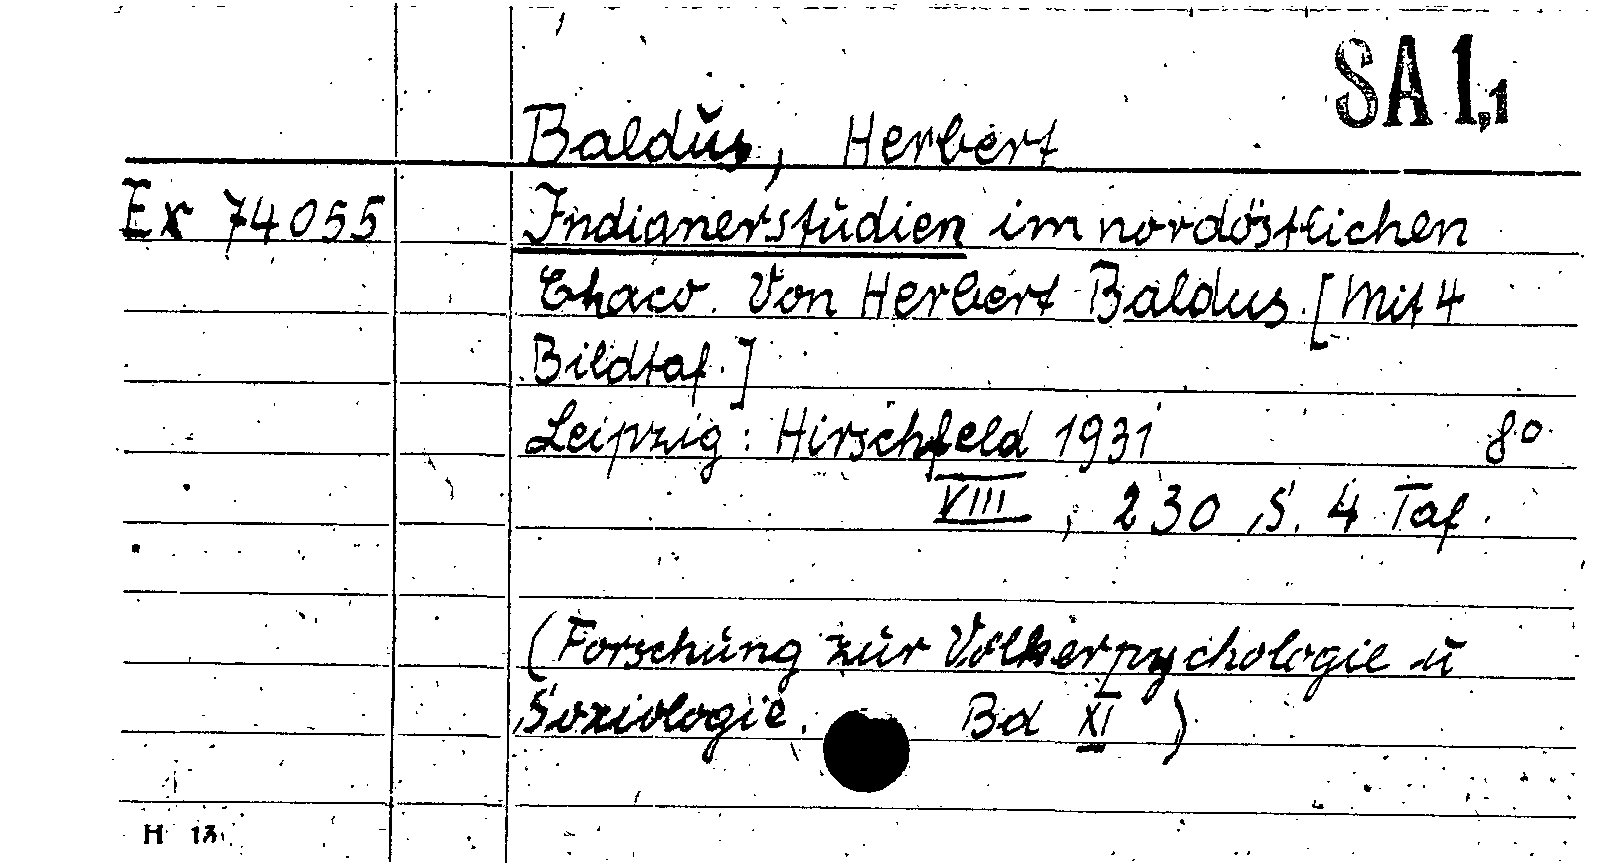 SA 1,1
Baldus, Herbert
Ex 74055 Indianerstudien im nordöstlichen
Chaco. Von Herbert Baldus. [Mit 4
Bildtaf.]
Leipzig: Hirschfeld 1931 8°
VIII, 230 S. 4 Taf.
(Forschung zur Völkerpsychologie u
Soziologie. Bd XI)
H 13